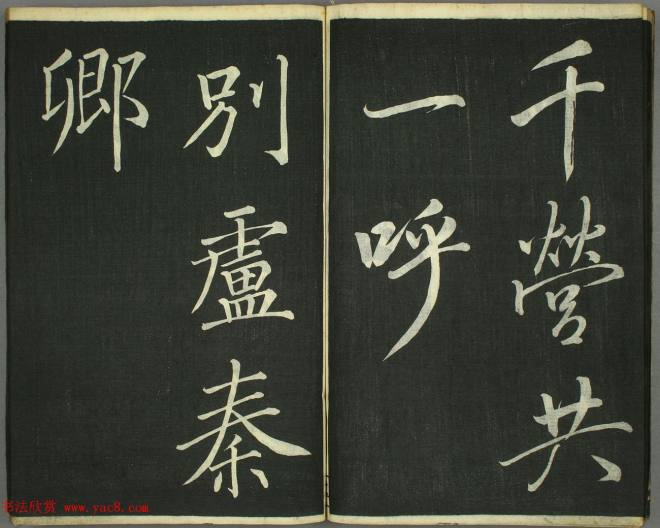 千營共
一呼
別盧秦
卿
书法欣赏 www.yac8.com